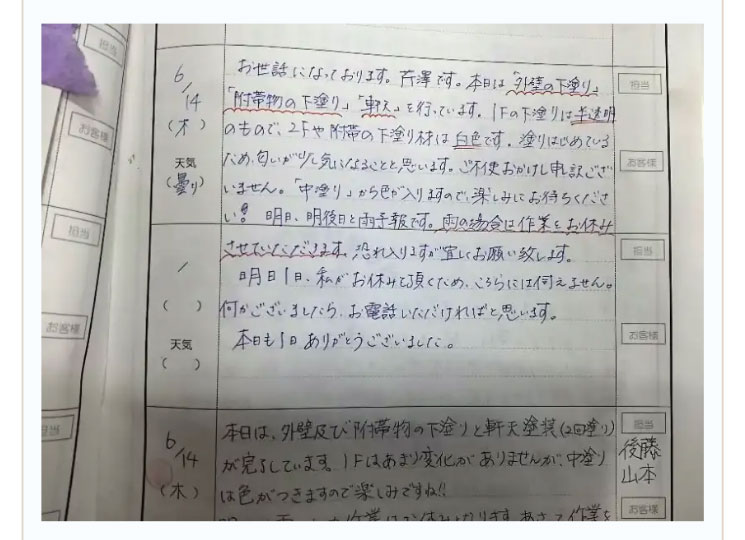 担当
6/14
(木)
天気
(曇り)
お世話になっております。芹澤です。本日は「外壁の下塗り」
「附帯物の下塗り」「軒天」を行っています。1Fの下塗りは半透明
のもので、2Fや附帯の下塗り材は白色です。塗りはじめている
ため、匂いが少し気になることと思います。ご不便おかけし申し訳ござ
いません。「中塗り」から色が入りますので、楽しみにお待ちくださ
い!明日、明後日と雨予報です。雨の場合は作業をお休み
させていただきます。恐れ入りますが宜しくお願い致します。
明日1日、私がお休みを頂くため、こちらには伺えません。
何かございましたら、お電話いただければと思います。
本日も1日ありがとうございました。
担当
お客様
/
( )
天気
( )
担当
お客様
6/14
(木)
本日は、外壁及び附帯物の下塗りと軒天塗装(2回塗り)
が完了しています。1Fはあまり変化がありませんが、中塗り
は色がつきますので楽しみですね!!
担当
後藤
山本
お客様
お客様
担当
お客様
担当
お客様